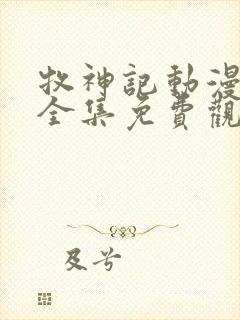 牧神記動漫
全集免費觀
及兮